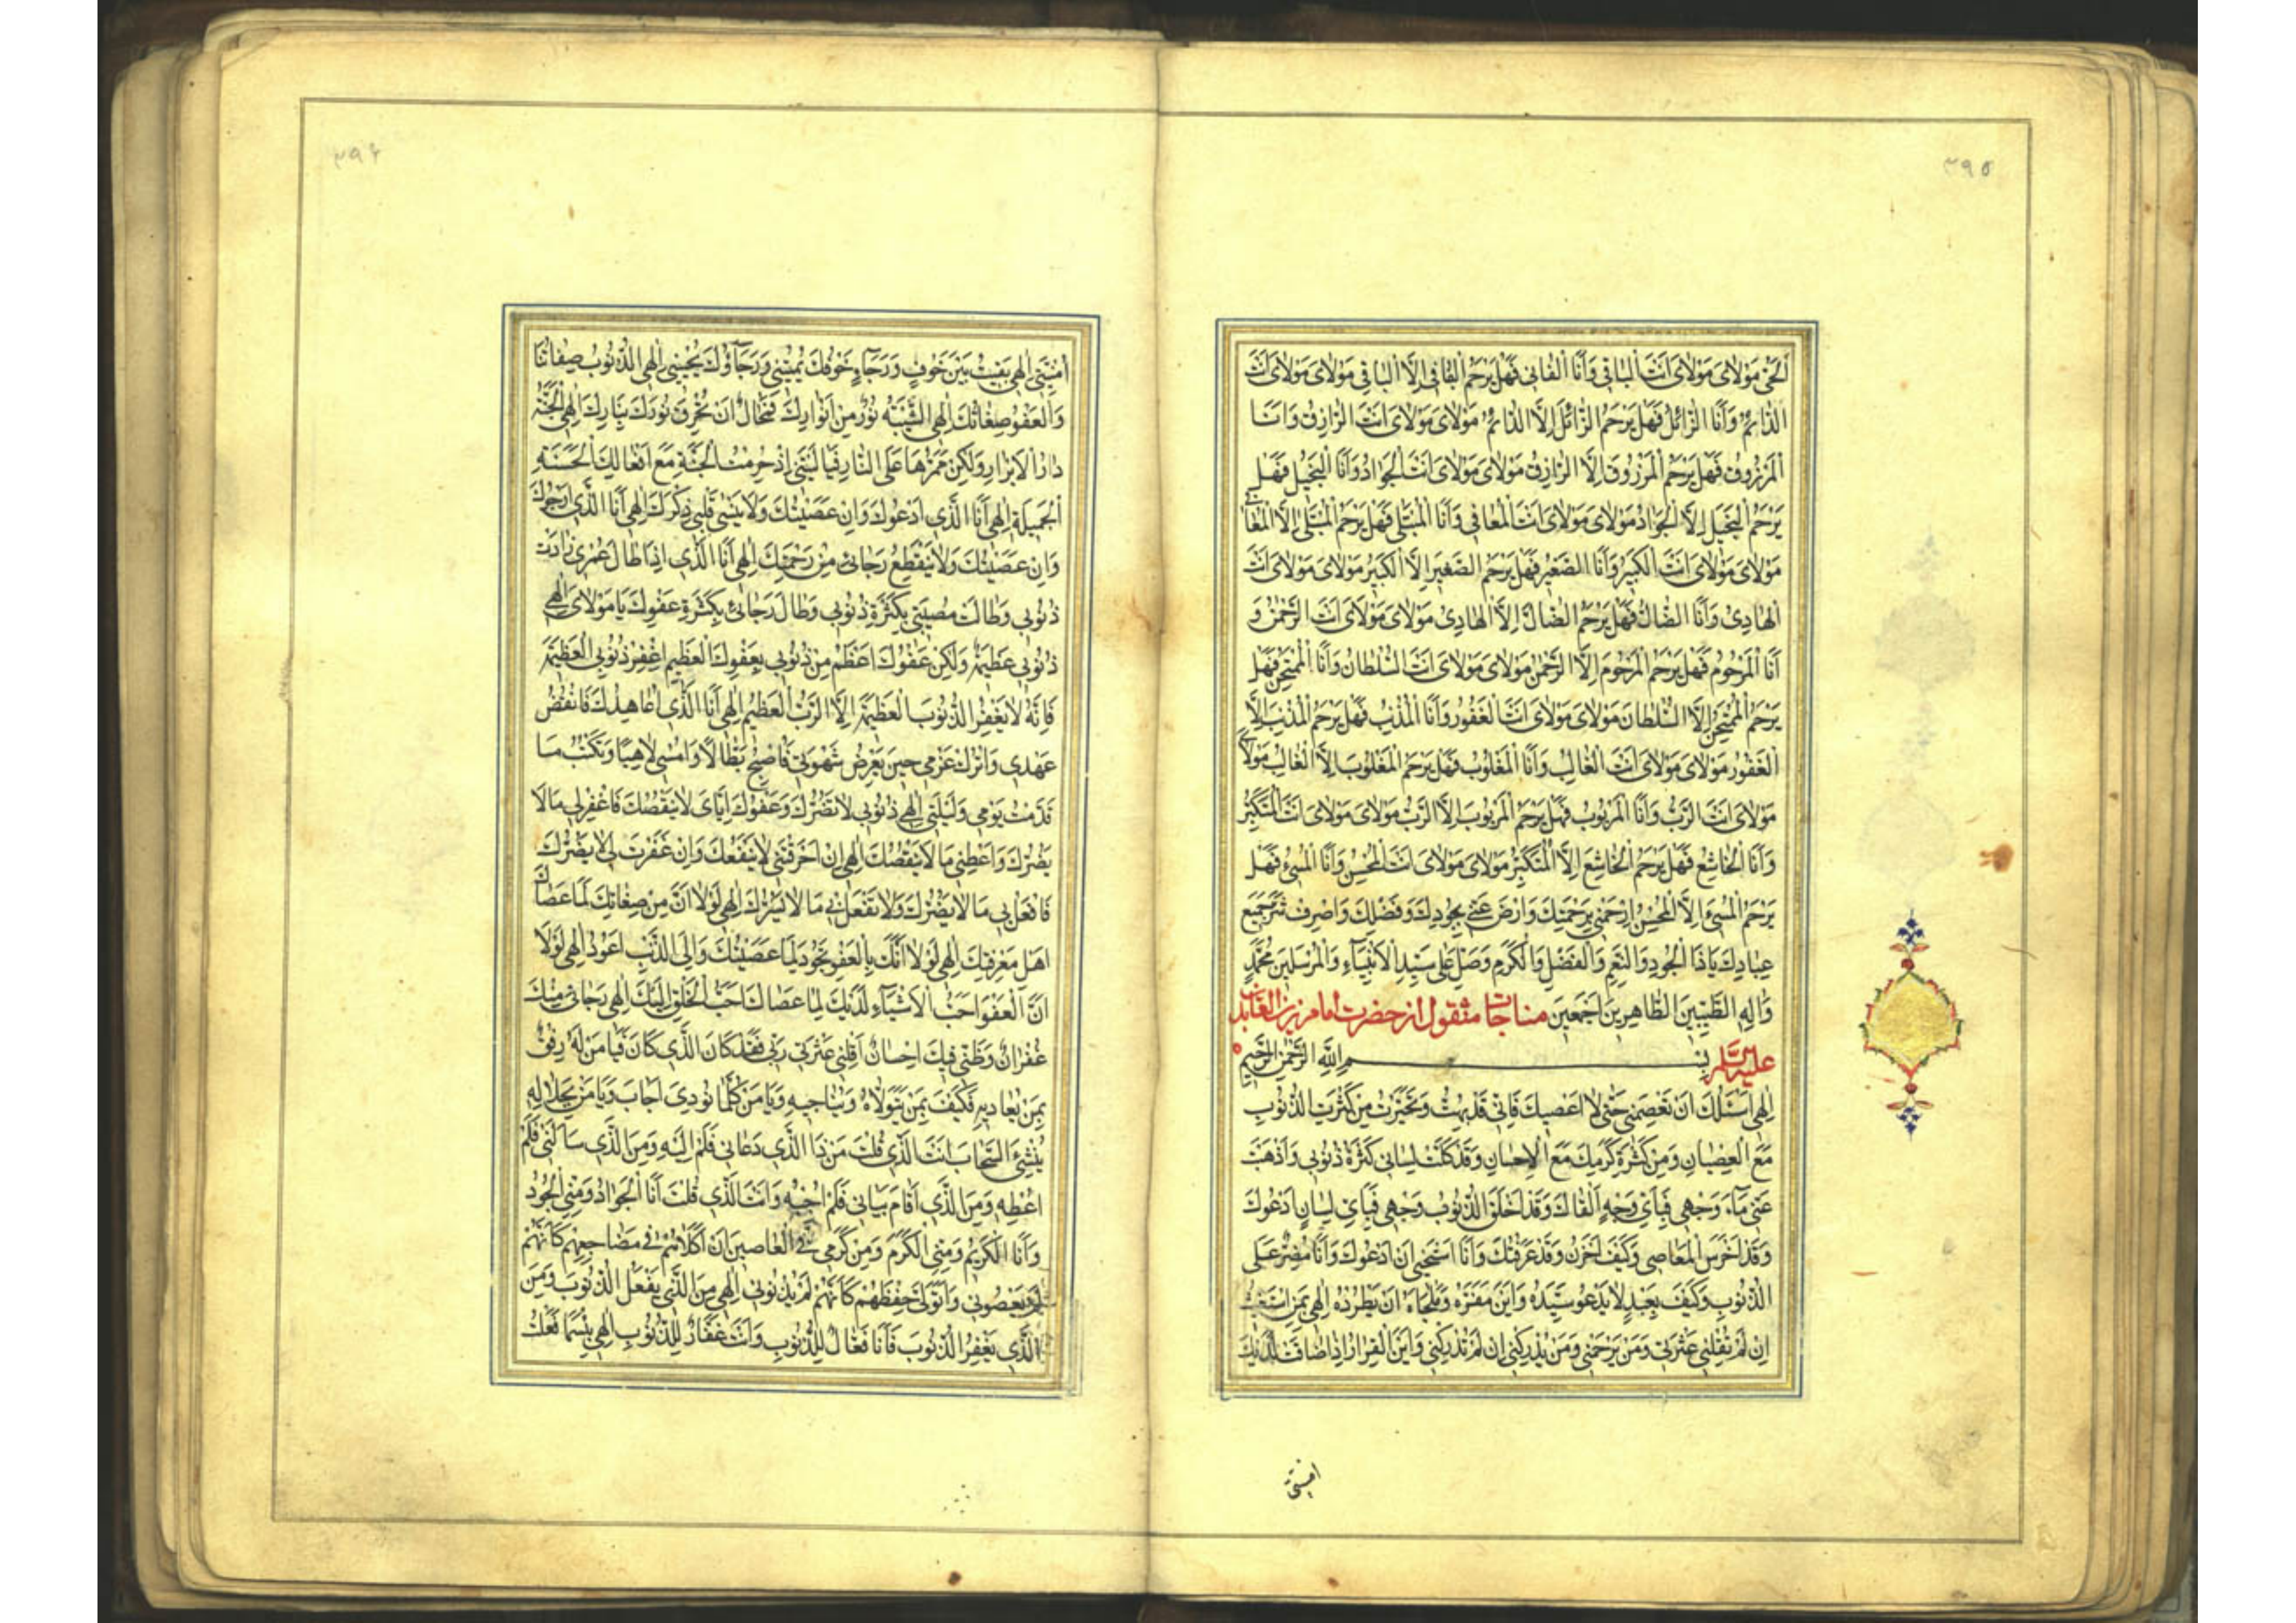 ۳۹۵
الْحَيُّ مَوْلَایَ مَوْلَایَ اَنْتَ الْبَاقِي وَاَنَا الْفَانِي فَهَلْ يَرْحَمُ الْفَانِيَ اِلَّا الْبَاقِي مَوْلَایَ مَوْلَایَ اَنْتَ
الدَّائِمُ وَاَنَا الزَّائِلُ فَهَلْ يَرْحَمُ الزَّائِلَ اِلَّا الدَّائِمُ مَوْلَایَ مَوْلَایَ اَنْتَ الرَّازِقُ وَاَنَا
الْمَرْزُوقُ فَهَلْ يَرْحَمُ الْمَرْزُوقَ اِلَّا الرَّازِقُ مَوْلَایَ مَوْلَایَ اَنْتَ الْجَوَادُ وَاَنَا الْبَخِيلُ فَهَلْ
يَرْحَمُ الْبَخِيلَ اِلَّا الْجَوَادُ مَوْلَایَ مَوْلَایَ اَنْتَ الْمُعَافِي وَاَنَا الْمُبْتَلَى فَهَلْ يَرْحَمُ الْمُبْتَلَى اِلَّا الْمُعَافِي
مَوْلَایَ مَوْلَایَ اَنْتَ الْكَبِيرُ وَاَنَا الصَّغِيرُ فَهَلْ يَرْحَمُ الصَّغِيرَ اِلَّا الْكَبِيرُ مَوْلَایَ مَوْلَایَ اَنْتَ
الْهَادِي وَاَنَا الضَّالُّ فَهَلْ يَرْحَمُ الضَّالَّ اِلَّا الْهَادِي مَوْلَایَ مَوْلَایَ اَنْتَ الرَّحْمٰنُ وَ
اَنَا الْمَرْحُومُ فَهَلْ يَرْحَمُ الْمَرْحُومَ اِلَّا الرَّحْمٰنُ مَوْلَایَ مَوْلَایَ اَنْتَ السُّلْطَانُ وَاَنَا الْمُمْتَحَنُ فَهَلْ
يَرْحَمُ الْمُمْتَحَنَ اِلَّا السُّلْطَانُ مَوْلَایَ مَوْلَایَ اَنْتَ الْغَفُورُ وَاَنَا الْمُذْنِبُ فَهَلْ يَرْحَمُ الْمُذْنِبَ اِلَّا
الْغَفُورُ مَوْلَایَ مَوْلَایَ اَنْتَ الْغَالِبُ وَاَنَا الْمَغْلُوبُ فَهَلْ يَرْحَمُ الْمَغْلُوبَ اِلَّا الْغَالِبُ مَوْلَایَ
مَوْلَایَ اَنْتَ الرَّبُّ وَاَنَا الْمَرْبُوبُ فَهَلْ يَرْحَمُ الْمَرْبُوبَ اِلَّا الرَّبُّ مَوْلَایَ مَوْلَایَ اَنْتَ الْمُتَكَبِّرُ
وَاَنَا الْخَاشِعُ فَهَلْ يَرْحَمُ الْخَاشِعَ اِلَّا الْمُتَكَبِّرُ مَوْلَایَ مَوْلَایَ اَنْتَ الْمُحْسِنُ وَاَنَا الْمُسِيءُ فَهَلْ
يَرْحَمُ الْمُسِيءَ اِلَّا الْمُحْسِنُ اِرْحَمْنِي بِرَحْمَتِكَ وَارْضَ عَنِّي بِجُودِكَ وَفَضْلِكَ وَاصْرِفْ شَرَّ جَمِيعِ
عِبَادِكَ يَا ذَا الْجُودِ وَالنِّعَمِ وَالْفَضْلِ وَالْكَرَمِ وَصَلِّ عَلَى سَيِّدِ الْاَنْبِيَآءِ وَالْمُرْسَلِينَ مُحَمَّدٍ
وَاٰلِهِ الطَّيِّبِينَ الطَّاهِرِينَ اَجْمَعِينَ مناجات منقول از حضرت امام زین العابدین
علیه السلام بِسْمِ اللّٰهِ الرَّحْمٰنِ الرَّحِيمِ
اِلٰهِي اَسْئَلُكَ اَنْ تَعْصِمَنِي حَتّٰى لَا اَعْصِيكَ فَاِنِّي قَدْ بُهِتُّ وَتَحَيَّرْتُ مِنْ كَثْرَتِ الذُّنُوبِ
مَعَ الْعِصْيَانِ وَمِنْ كَثْرَةِ كَرَمِكَ مَعَ الْاِحْسَانِ وَقَدْ كَلَّتْ لِسَانِي كَثْرَةُ ذُنُوبِي وَاَذْهَبَتْ
عَنِّي مَآءَ وَجْهِي فَبِاَيِّ وَجْهٍ اَلْقَاكَ وَقَدْ اَخْلَقَ الذُّنُوبُ وَجْهِي فَبِاَيِّ لِسَانٍ اَدْعُوكَ
وَقَدْ اَخْرَسَ الْمَعَاصِي وَكَيْفَ اَحْزَنُ وَقَدْ عَرَفْتُكَ وَاَنَا اَسْتَحْيِي اَنْ اَدْعُوكَ وَاَنَا مُصِرٌّ عَلَى
الذُّنُوبِ وَكَيْفَ بِعَبْدٍ لَا يَدْعُو سَيِّدَهُ وَاَيْنَ مَفَرُّهُ وَمَلْجَاهُ اَنْ يَطْرُدَهُ اِلٰهِي بِمَنْ اَسْتَغِيثُ
اِنْ لَمْ تُقِلْنِي عَثْرَتِي وَمَنْ يَرْحَمُنِي وَمَنْ يُدْرِكُنِي اِنْ لَمْ تُدْرِكْنِي وَاَيْنَ الْفِرَارُ اِذَا ضَاقَتْ لَدَيْكَ
امنیتی
۳۹۶
اُمْنِيَّتِي اِلٰهِي بَقِيتُ بَيْنَ خَوْفٍ وَرَجَآءٍ خَوْفُكَ يُمِيتُنِي وَرَجَآؤُكَ يُحْيِينِي اِلٰهِي الذُّنُوبُ صِفَاتُنَا
وَالْعَفْوُ صِفَاتُكَ اِلٰهِي الشَّيْبَةُ نُورٌ مِنْ اَنْوَارِكَ فَمُحَالٌ اَنْ تُحْرِقَ نُورَكَ بِنَارِكَ اِلٰهِي الْجَنَّةُ
دَارُ الْاَبْرَارِ وَلٰكِنْ مَمَرُّهَا عَلَى النَّارِ فَيَا لَيْتَنِي اِذْ حُرِمْتُ الْجَنَّةِ مَعَ اَفْعَالِكَ الْحَسَنَةِ
الْجَمِيلَةِ اِلٰهِي اَنَا الَّذِي اَدْعُوكَ وَاِنْ عَصَيْتُكَ وَلَا يَنْسٰى قَلْبِي ذِكْرَكَ اِلٰهِي اَنَا الَّذِي اَرْجُوكَ
وَاِنْ عَصَيْتُكَ وَلَا يَنْقَطِعُ رَجَائِي مِنْ رَحْمَتِكَ اِلٰهِي اَنَا الَّذِي اِذَا طَالَ عُمْرِي زَادَتْ
ذُنُوبِي وَطَالَتْ مُصِيبَتِي بِكَثْرَةِ ذُنُوبِي وَطَالَ رَجَائِي بِكَثْرَةِ عَفْوِكَ يَا مَوْلَایَ اِلٰهِي
ذُنُوبِي عَظِيمَةٌ وَلٰكِنْ عَفْوُكَ اَعْظَمُ مِنْ ذُنُوبِي بِعَفْوِكَ الْعَظِيمِ اِغْفِرْ ذُنُوبِيَ الْعَظِيمَةَ
فَاِنَّهُ لَا يَغْفِرُ الذُّنُوبَ الْعَظِيمَةَ اِلَّا الرَّبُّ الْعَظِيمُ اِلٰهِي اَنَا الَّذِي اُعَاهِدُكَ فَاَنْقُضُ
عَهْدِي وَاَتْرُكُ عَزْمِي حِينَ يَعْرِضُ شَهْوَتِي فَاُصْبِحُ بَطَّالًا وَاُمْسِي لَاهِيًا وَتَكْتُبُ مَا
قَدَّمْتُ يَوْمِي وَلَيْلَتِي اِلٰهِي ذُنُوبِي لَا تَضُرُّكَ وَعَفْوُكَ اِيَّايَ لَا يَنْقُصُكَ فَاغْفِرْ لِي مَا لَا
يَضُرُّكَ وَاَعْطِنِي مَا لَا يَنْقُصُكَ اِلٰهِي اِنْ اَحْرَقْتَنِي لَا يَنْفَعُكَ وَاِنْ غَفَرْتَ لِي لَا يَضُرُّكَ
فَافْعَلْ بِي مَا لَا يَضُرُّكَ وَلَا تَفْعَلْ بِي مَا لَا يَسُرُّكَ اِلٰهِي لَوْلَا اَنَّ مِنْ صِفَاتِكَ لَمَا عَصَاكَ
اَهْلُ مَعْرِفَتِكَ اِلٰهِي لَوْلَا اَنَّكَ بِالْعَفْوِ تَجُودُ لَمَا عَصَيْتُكَ وَاِلَى الذَّنْبِ اَعُودُ اِلٰهِي لَوْلَا
اَنَّ الْعَفْوَ اَحَبُّ الْاَشْيَآءِ لَدَيْكَ لِمَا عَصَاكَ اَحَبُّ الْخَلْقِ اِلَيْكَ اِلٰهِي رَجَائِي مِنْكَ
غُفْرَانٌ وَظَنِّي فِيكَ اِحْسَانٌ اَقِلْنِي عَثْرَتِي رَبِّي فَقَدْ كَانَ الَّذِي كَانَ فَيَا مَنْ لَهُ رِفْقٌ
بِمَنْ يُعَادِيهِ فَكَيْفَ بِمَنْ يَتَوَلَّاهُ وَيُنَاجِيهِ وَيَا مَنْ كُلَّمَا نُودِيَ اَجَابَ وَيَا مَنْ بِجَلَالِهِ
يُنْشِئُ السَّحَابَ اَنْتَ الَّذِي قُلْتَ مَنْ ذَا الَّذِي دَعَانِي فَلَمْ اُلَبِّهِ وَمَنِ الَّذِي سَاَلَنِي فَلَمْ
اُعْطِهِ وَمَنِ الَّذِي اَقَامَ بِبَابِي فَلَمْ اُجِبْهُ وَاَنْتَ الَّذِي قُلْتَ اَنَا الْجَوَادُ وَمِنِّي الْجُودُ
وَاَنَا الْكَرِيمُ وَمِنِّي الْكَرَمُ وَمِنْ كَرَمِي فِي الْعَاصِينَ اَنْ اَكْلَاَهُمْ فِي مَضَاجِعِهِمْ كَاَنَّهُمْ
لَمْ يَعْصُونِي وَاَتَوَلّٰى حِفْظَهُمْ كَاَنَّهُمْ لَمْ يُذْنِبُونِي اِلٰهِي مَنِ الَّذِي يَفْعَلُ الذُّنُوبَ وَمَنِ
الَّذِي يَغْفِرُ الذُّنُوبَ فَاَنَا فَعَّالٌ لِلذُّنُوبِ وَاَنْتَ غَفَّارٌ لِلذُّنُوبِ اِلٰهِي بِئْسَمَا فَعَلْتُ